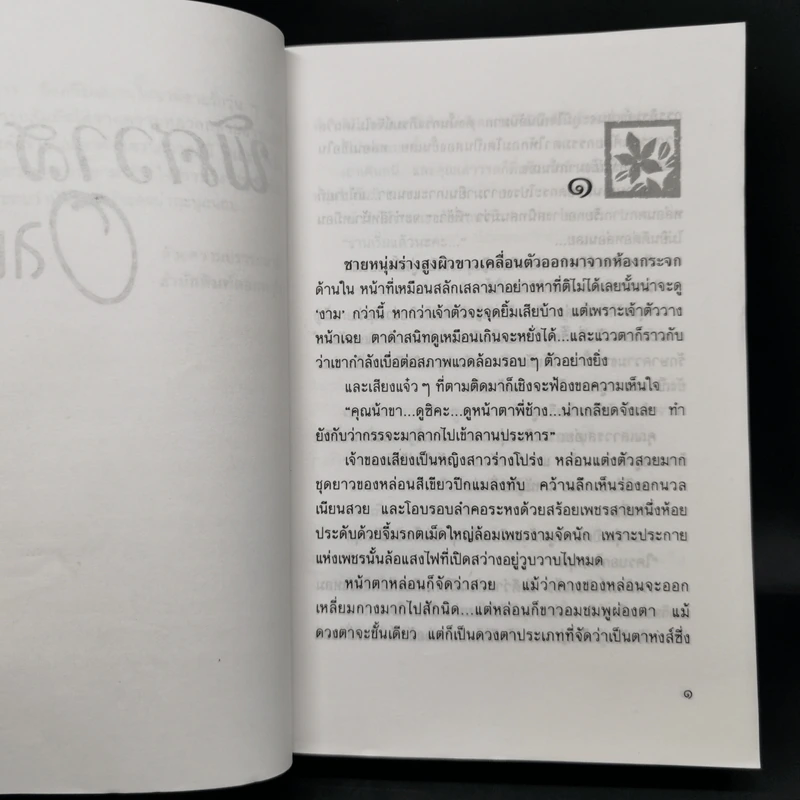 พิศวาส
๑
ชายหนุ่มร่างสูงผิวขาวเคลื่อนตัวออกมาจากห้องกระจก
ด้านใน หน้าที่เหมือนสลักเสลามาอย่างหาที่ติไม่ได้เลยนั้นน่าจะดู
‘งาม’ กว่านี้ หากว่าเจ้าตัวจะจุดยิ้มเสียบ้าง แต่เพราะเจ้าตัววาง
หน้าเฉย ตาดำสนิทดูเหมือนเกินจะหยั่งได้...และแววตาก็ราวกับ
ว่าเขากำลังเบื่อต่อสภาพแวดล้อมรอบๆ ตัวอย่างยิ่ง
และเสียงแจ๋วๆ ที่ตามติดมาก็เชิงจะฟ้องขอความเห็นใจ
“คุณน้าขา...ดูซิคะ...ดูหน้าตาพี่ช้าง...น่าเกลียดจังเลย ทำ
ยังกับว่ากรรจะมาลากไปเข้าลานประหาร”
เจ้าของเสียงเป็นหญิงสาวร่างโปร่ง หล่อนแต่งตัวสวยมาก
ชุดยาวของหล่อนสีเขียวปีกแมลงทับ คว้านลึกเห็นร่องอกนวล
เนียนสวย และโอบรอบลำคอระหงด้วยสร้อยเพชรสายหนึ่งห้อย
ประดับด้วยจี้มรกตเม็ดใหญ่ล้อมเพชรงามจัดนัก เพราะประกาย
แห่งเพชรนั้นล้อแสงไฟที่เปิดสว่างอยู่วูบวาบไปหมด
หน้าตาหล่อนก็จัดว่าสวย แม้ว่าคางของหล่อนจะออก
เหลี่ยมกางมากไปสักนิด...แต่หล่อนก็ขาวอมชมพูผ่องตา แม้
ดวงตาจะชั้นเดียว แต่ก็เป็นดวงตาประเภทที่จัดว่าเป็นตาหงส์ซึ่ง
๑